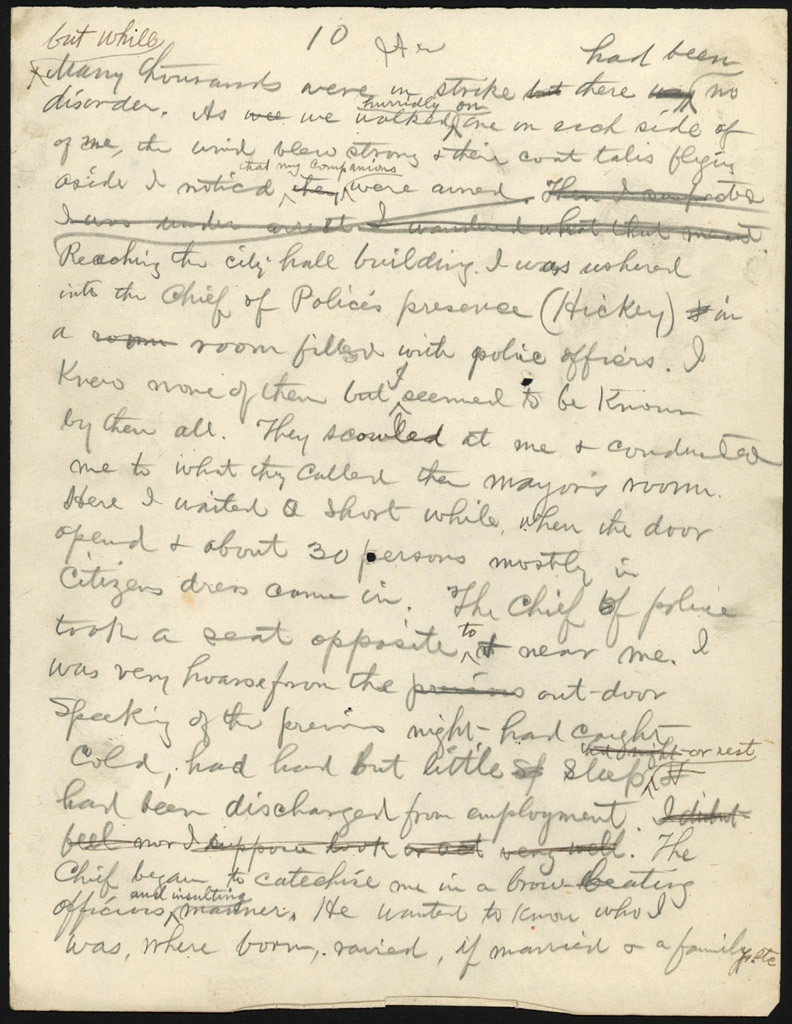 but while 10
had been
Many thousands were on strike but there was no
disorder. As we we walked hurridly on one on each side of
of me, the wind blew strong & their coat tails flying
aside I noticed they that my companions were armed. Then I suspected
I was under arrest I wondered what that meant.
Reaching the city hall building. I was ushered
into the Chief of Police's presence (Hickey) & in
a room room filled with police officers. I
Knew none of them but I seemed to be Known
by them all. They scowled at me & conducted
me to what they called the mayor's room.
Here I waited a short while, when the door
opened & about 30 persons mostly in
Citizens dress came in. The Chief of police
took a seat opposite to & near me. I
was very hoarse from the previous out-door
Speaking of the previous night - had caught
Cold, had had but little sleep or rest &
had been discharged from employment. I did not
feel nor I suppose look or act very well. The
Chief began to catechise me in a brow-beating
officious and insulting manner. He wanted to Know who I
was, where born, raised, if married & a family, etc